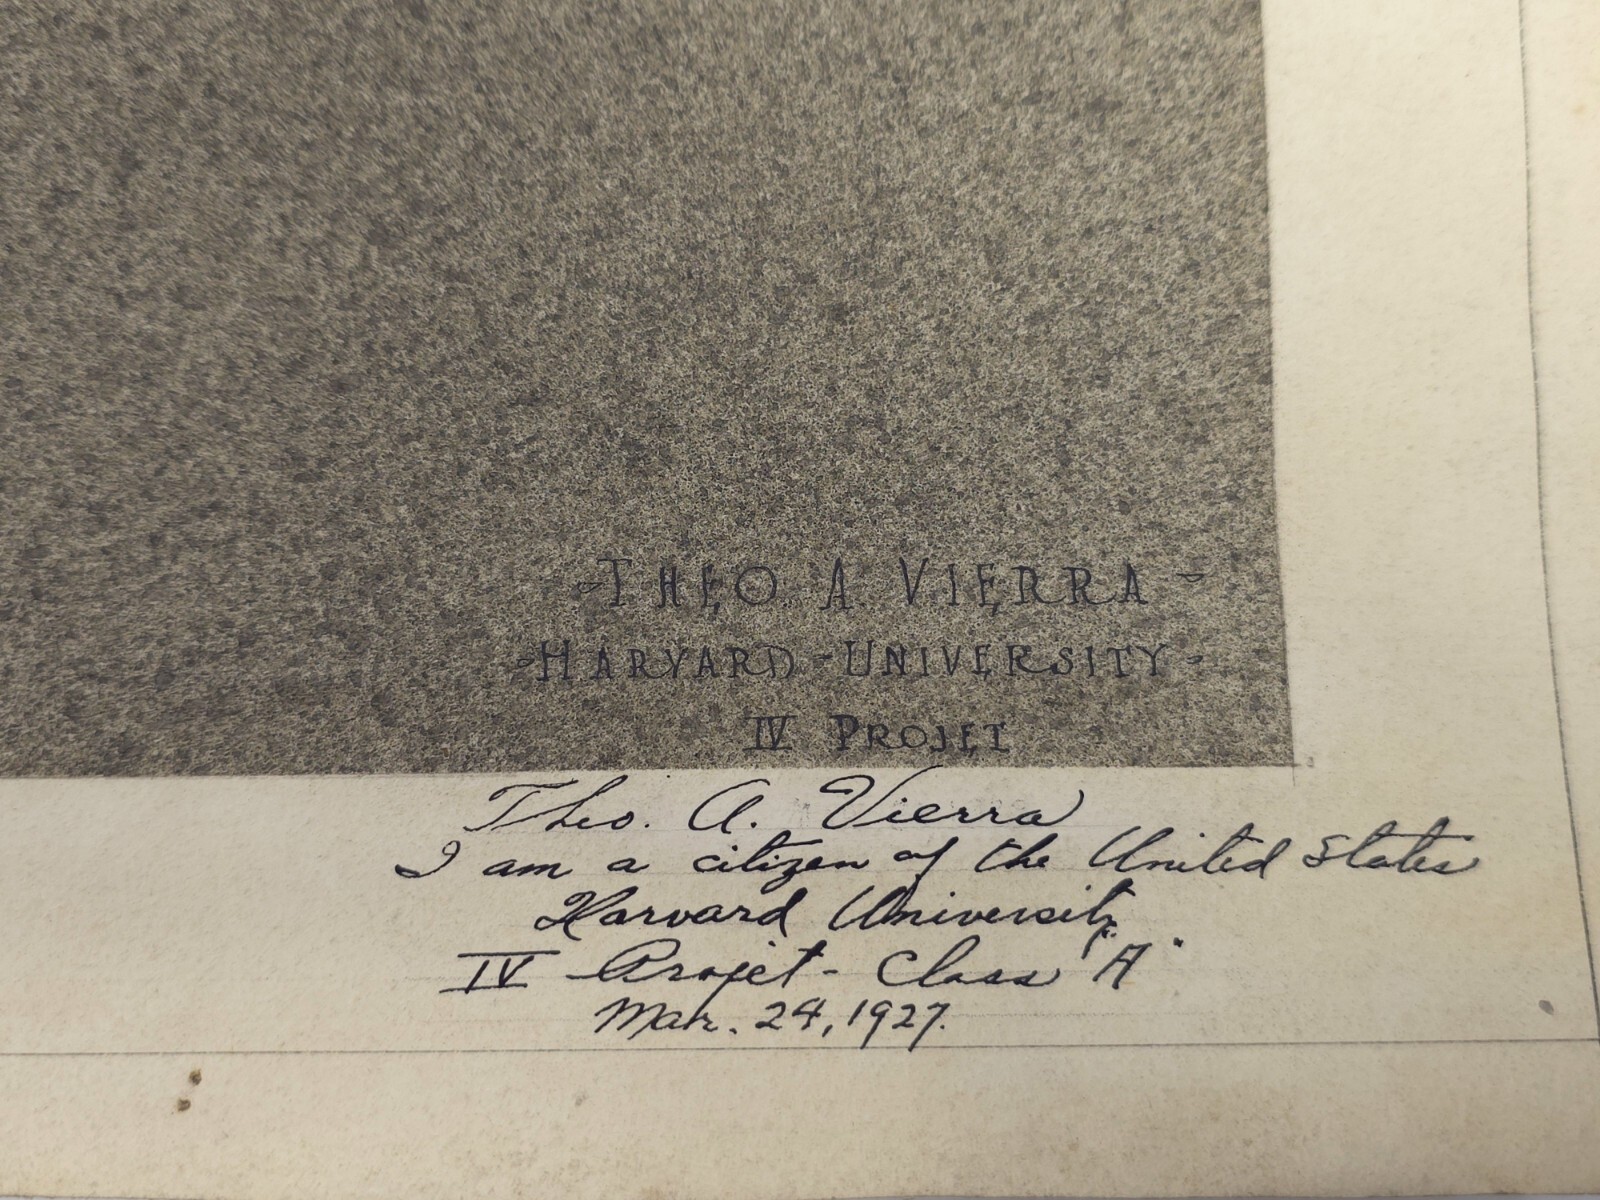 -THEO. A. VIERRA-
-HARVARD-UNIVERSITY-
IV PROJET
Theo. A. Vierra
I am a citizen of the United States
Harvard University
IV Projet - Class "A"
Mar. 24, 1927.